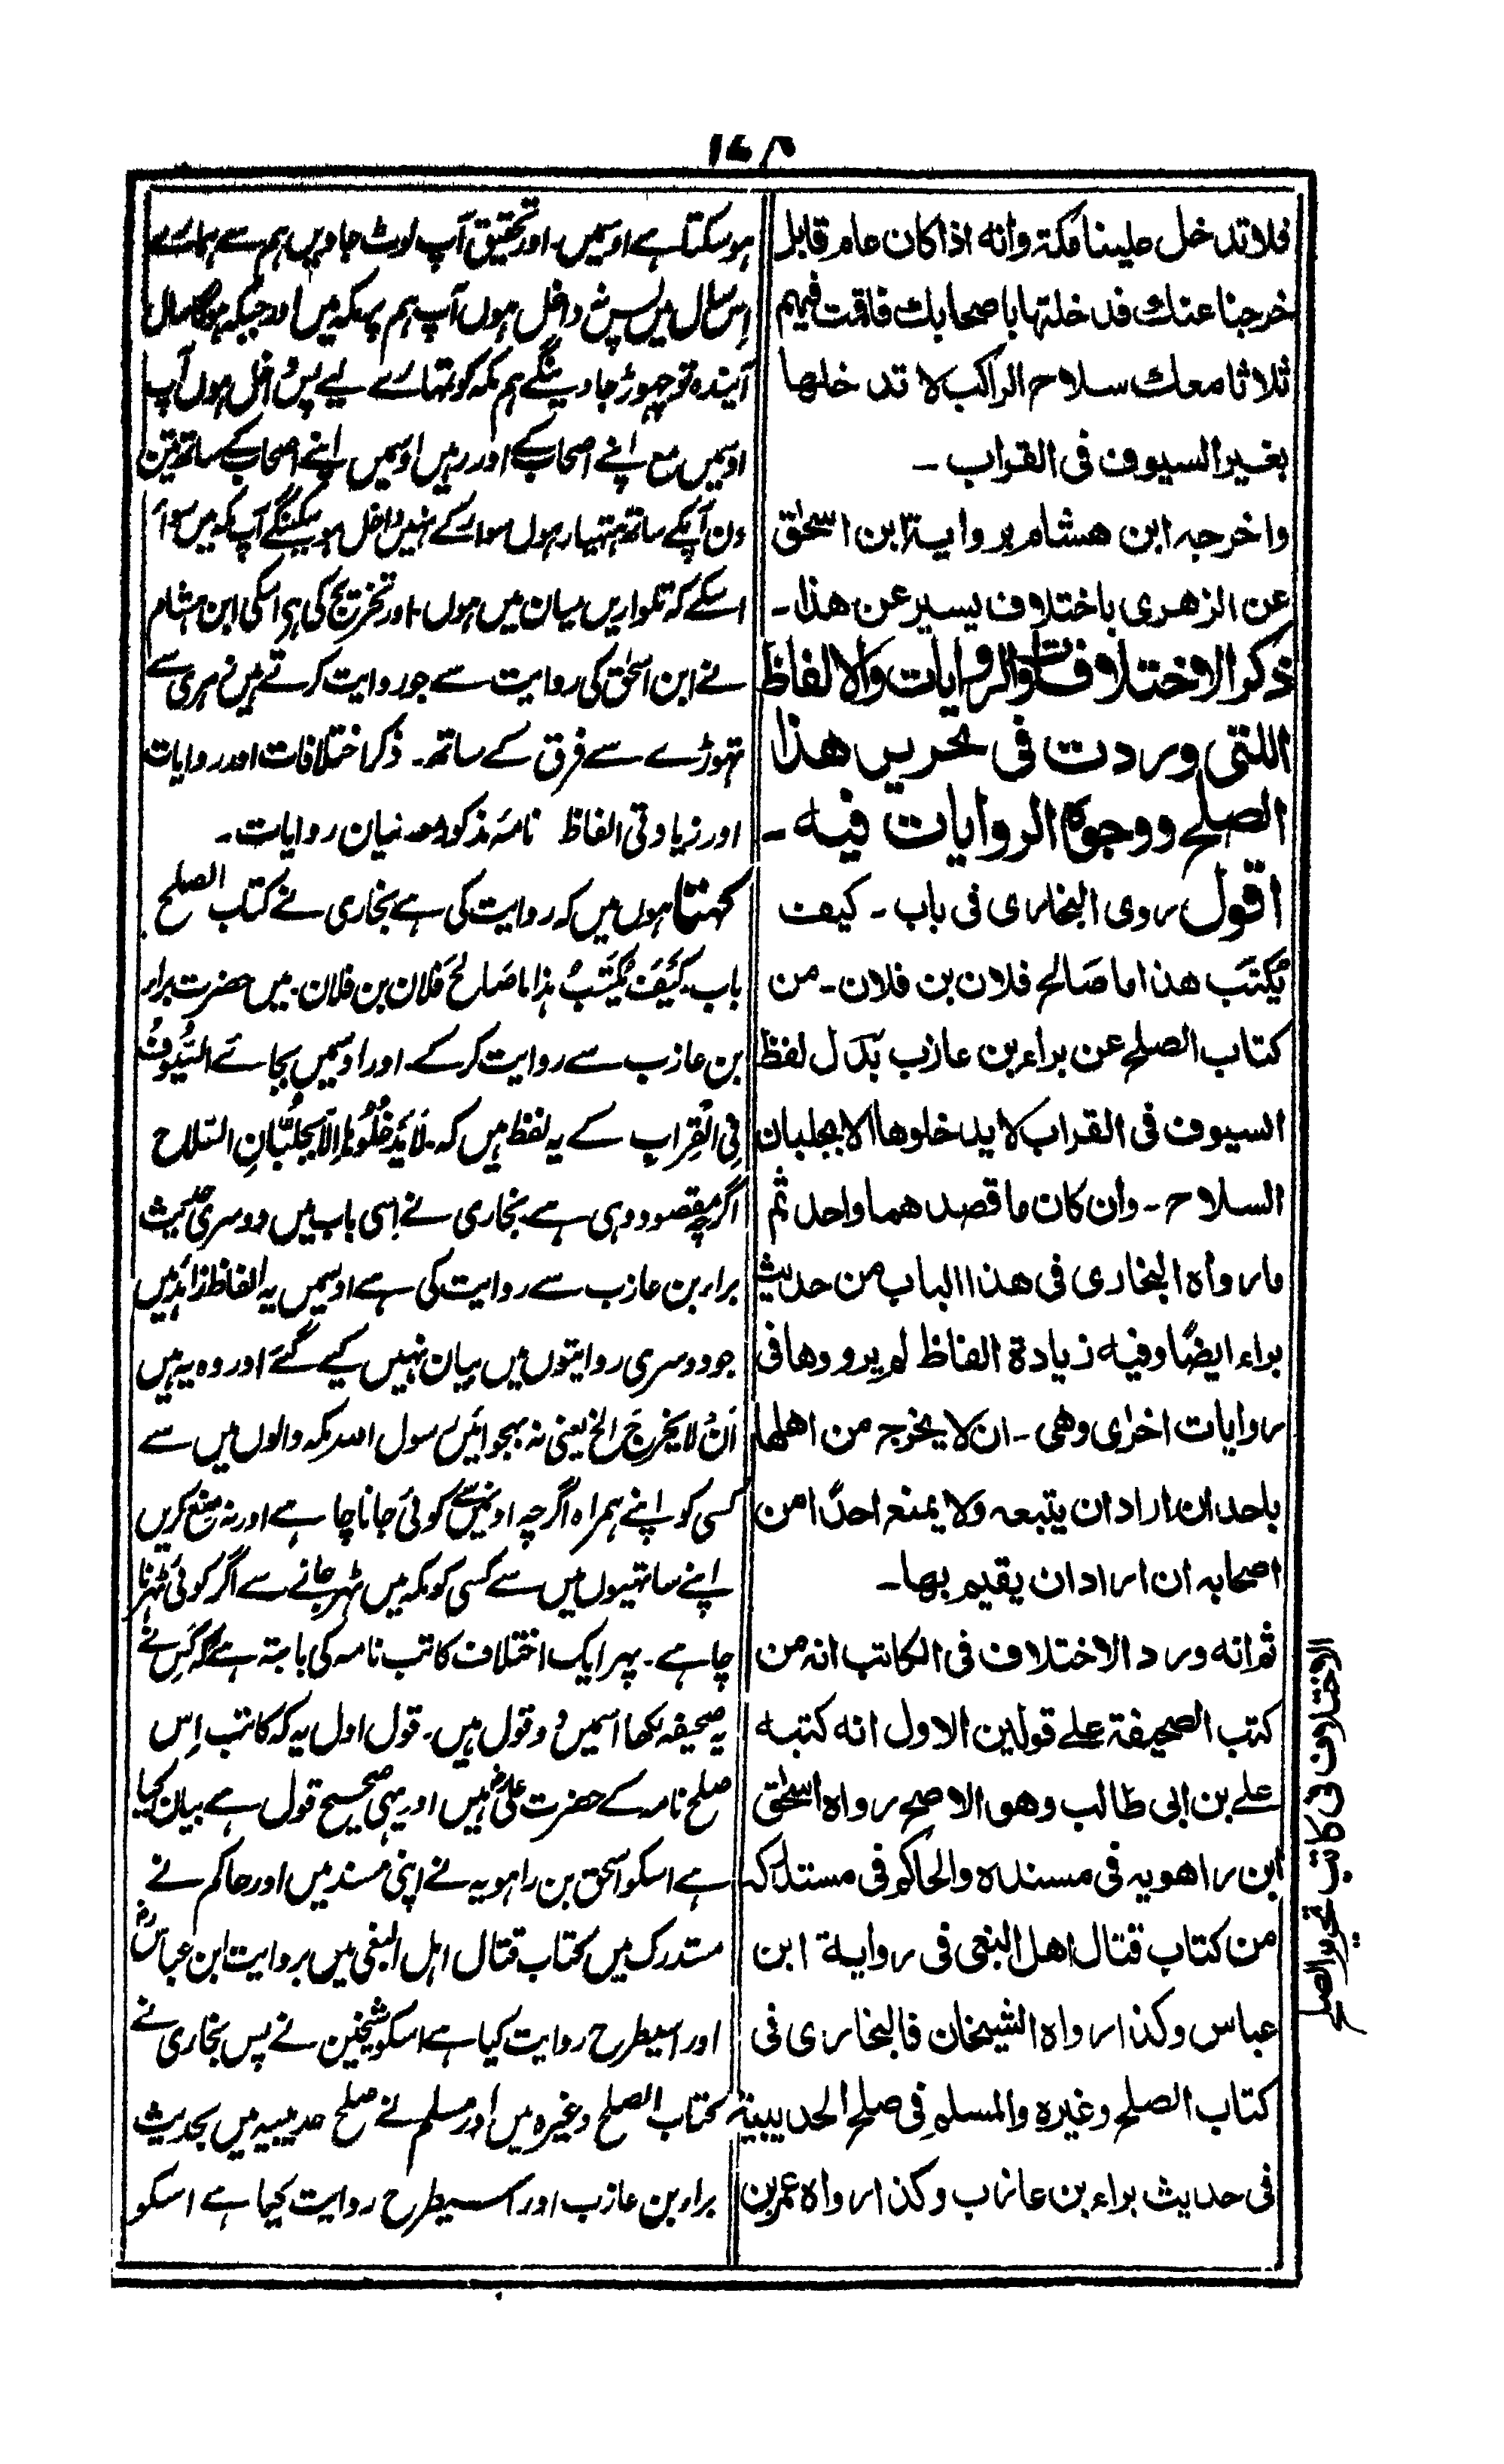 ۱۷۸
فلا تدخل علينا مكة وانه اذا كان عام قابل
خرجنا عنك فدخلتها باصحابك فاقمت فيهم
ثلاثا معك سلاح الراكب لا تدخلها
بغير السيوف فى القراب ـ
واخرجه ابن هشام برواية ابن اسحٰق
عن الزهرى باختلاف يسير عن هذا ـ
ذكر الاختلافات والروايات والالفاظ
اللتى وردت فى تحرير هذا
الصلح ووجوه الروايات فيه ـ
اقول روى البخارى فى باب ـ كيف
يُكتَب هذا ما صَالح فلان بن فلان ـ من
كتاب الصلح عن براء بن عازب بَدَل لفظ
السيوف فى القراب لا يدخلوها الا بجلبان
السلاح ـ وان كان ما قصد هما واحد ثم
ما رواه البخارى فى هذا الباب من حديث
براء ايضًا وفيه زيادة الفاظ لم يرووها فى
روايات اخرٰى وهى ـ ان لا يخرج من اهلها
باحد ان اراد ان يتبعه ولا يمنع احدًا من
اصحابه ان اراد ان يقيم بها ـ
ثم انه ورد الاختلاف فى الكاتب انه من
كتب الصحيفة علے قولين الاول انه كتبه
علے بن ابى طالب وهو الاصح رواه اسحٰق
ابن راهويه فى مسنده والحاكم فى مستدركه
من كتاب قتال اهل البغى فى رواية ابن
عباس وكذا رواه الشيخان فالبخارى فى
كتاب الصلح وغيره والمسلم فى صلح الحديبية
فى حديث براء بن عازب وكذا رواه عمر بن
ہوسکتا ہے اوسمیں۔ اور تحقیق آپ لوٹ جاویں ہم سے ہمارے
اِس سال میں پس نہ داخل ہوں آپ ہم پر مکہ میں اور جبکہ ہوگا سال
آیندہ تو چہوڑ جاوینگے ہم مکہ کو تمہارے لیے پس داخل ہوں آپ
اوسمیں مع اپنے اصحاب کے اور رہیں اوسمیں اپنے اصحاب کے ساتھ تین
دن آپکے ساتھ ہتہیار ہوں سوار کے نہیں داخل ہو سکینگے آپ مکہ میں سوائے
اسکے کہ تلواریں میان میں ہوں۔ اور تخریج کی ہے اسکی ابن ہشام
نے ابن اسحٰق کی روایت سے جو روایت کرتے ہیں زہری سے
تہوڑے سے فرق کے ساتھ۔ ذکر اختلافات اور روایات
اور زیادتی الفاظ نامۂ مذکور معہ بیان روایات۔
کہتا ہوں میں کہ روایت کی ہے بخاری نے کتاب الصلح
باب۔ کَیْفَ یُکْتَبُ ہذا ما صَالَحَ فلان بن فلان۔ میں حضرت براء
بن عازب سے روایت کرکے۔ اور اوسمیں بجائے السُّیُوفُ
فِی الْقِرَابِ کے یہ لفظ ہیں کہ۔ لَا یَدْخُلُوْہَا اِلَّا بِجُلُبَّانِ السّلاح
اگرچہ مقصود وہی ہے۔ بخاری نے اسی باب میں دوسری حدیث
براء بن عازب سے روایت کی ہے اوسمیں یہ الفاظ زائد ہیں
جو دوسری روایتوں میں بیان نہیں کیے گئے اور وہ یہ ہیں
اَنْ لا یخرجَ الخ یعنی نہ بہجوائیں رسول اللہ مکہ والوں میں سے
کسی کو اپنے ہمراہ اگرچہ اونمیں سے کوئی جانا چاہے اور نہ منع کریں
اپنے ساتہیوں میں سے کسی کو مکہ میں ٹہر جانے سے اگر کوئی ٹہرنا
چاہے۔ پہر ایک اختلاف کاتب نامہ کی بابتہ ہے کہ کس نے
یہ صحیفہ لکھا اسمیں دو قول ہیں۔ قول اول یہ کہ کاتب اِس
صلح نامہ کے حضرت علیؓ ہیں اور یہی صحیح قول ہے بیان کیا
ہے اسکو اسحٰق بن راہویہ نے اپنی مسند میں اور حاکم نے
مستدرک میں کتاب قتال اہل البغی میں بروایت ابن عباسؓ
اور اسیطرح روایت کیا ہے اسکو شیخین نے پس بخاری نے
کتاب الصلح وغیرہ میں اور مسلم نے صلح حدیبیہ میں بحدیث
براء بن عازب اور اسیطرح روایت کیا ہے اسکو
الاختلاف فى كاتب تحرير الصلح